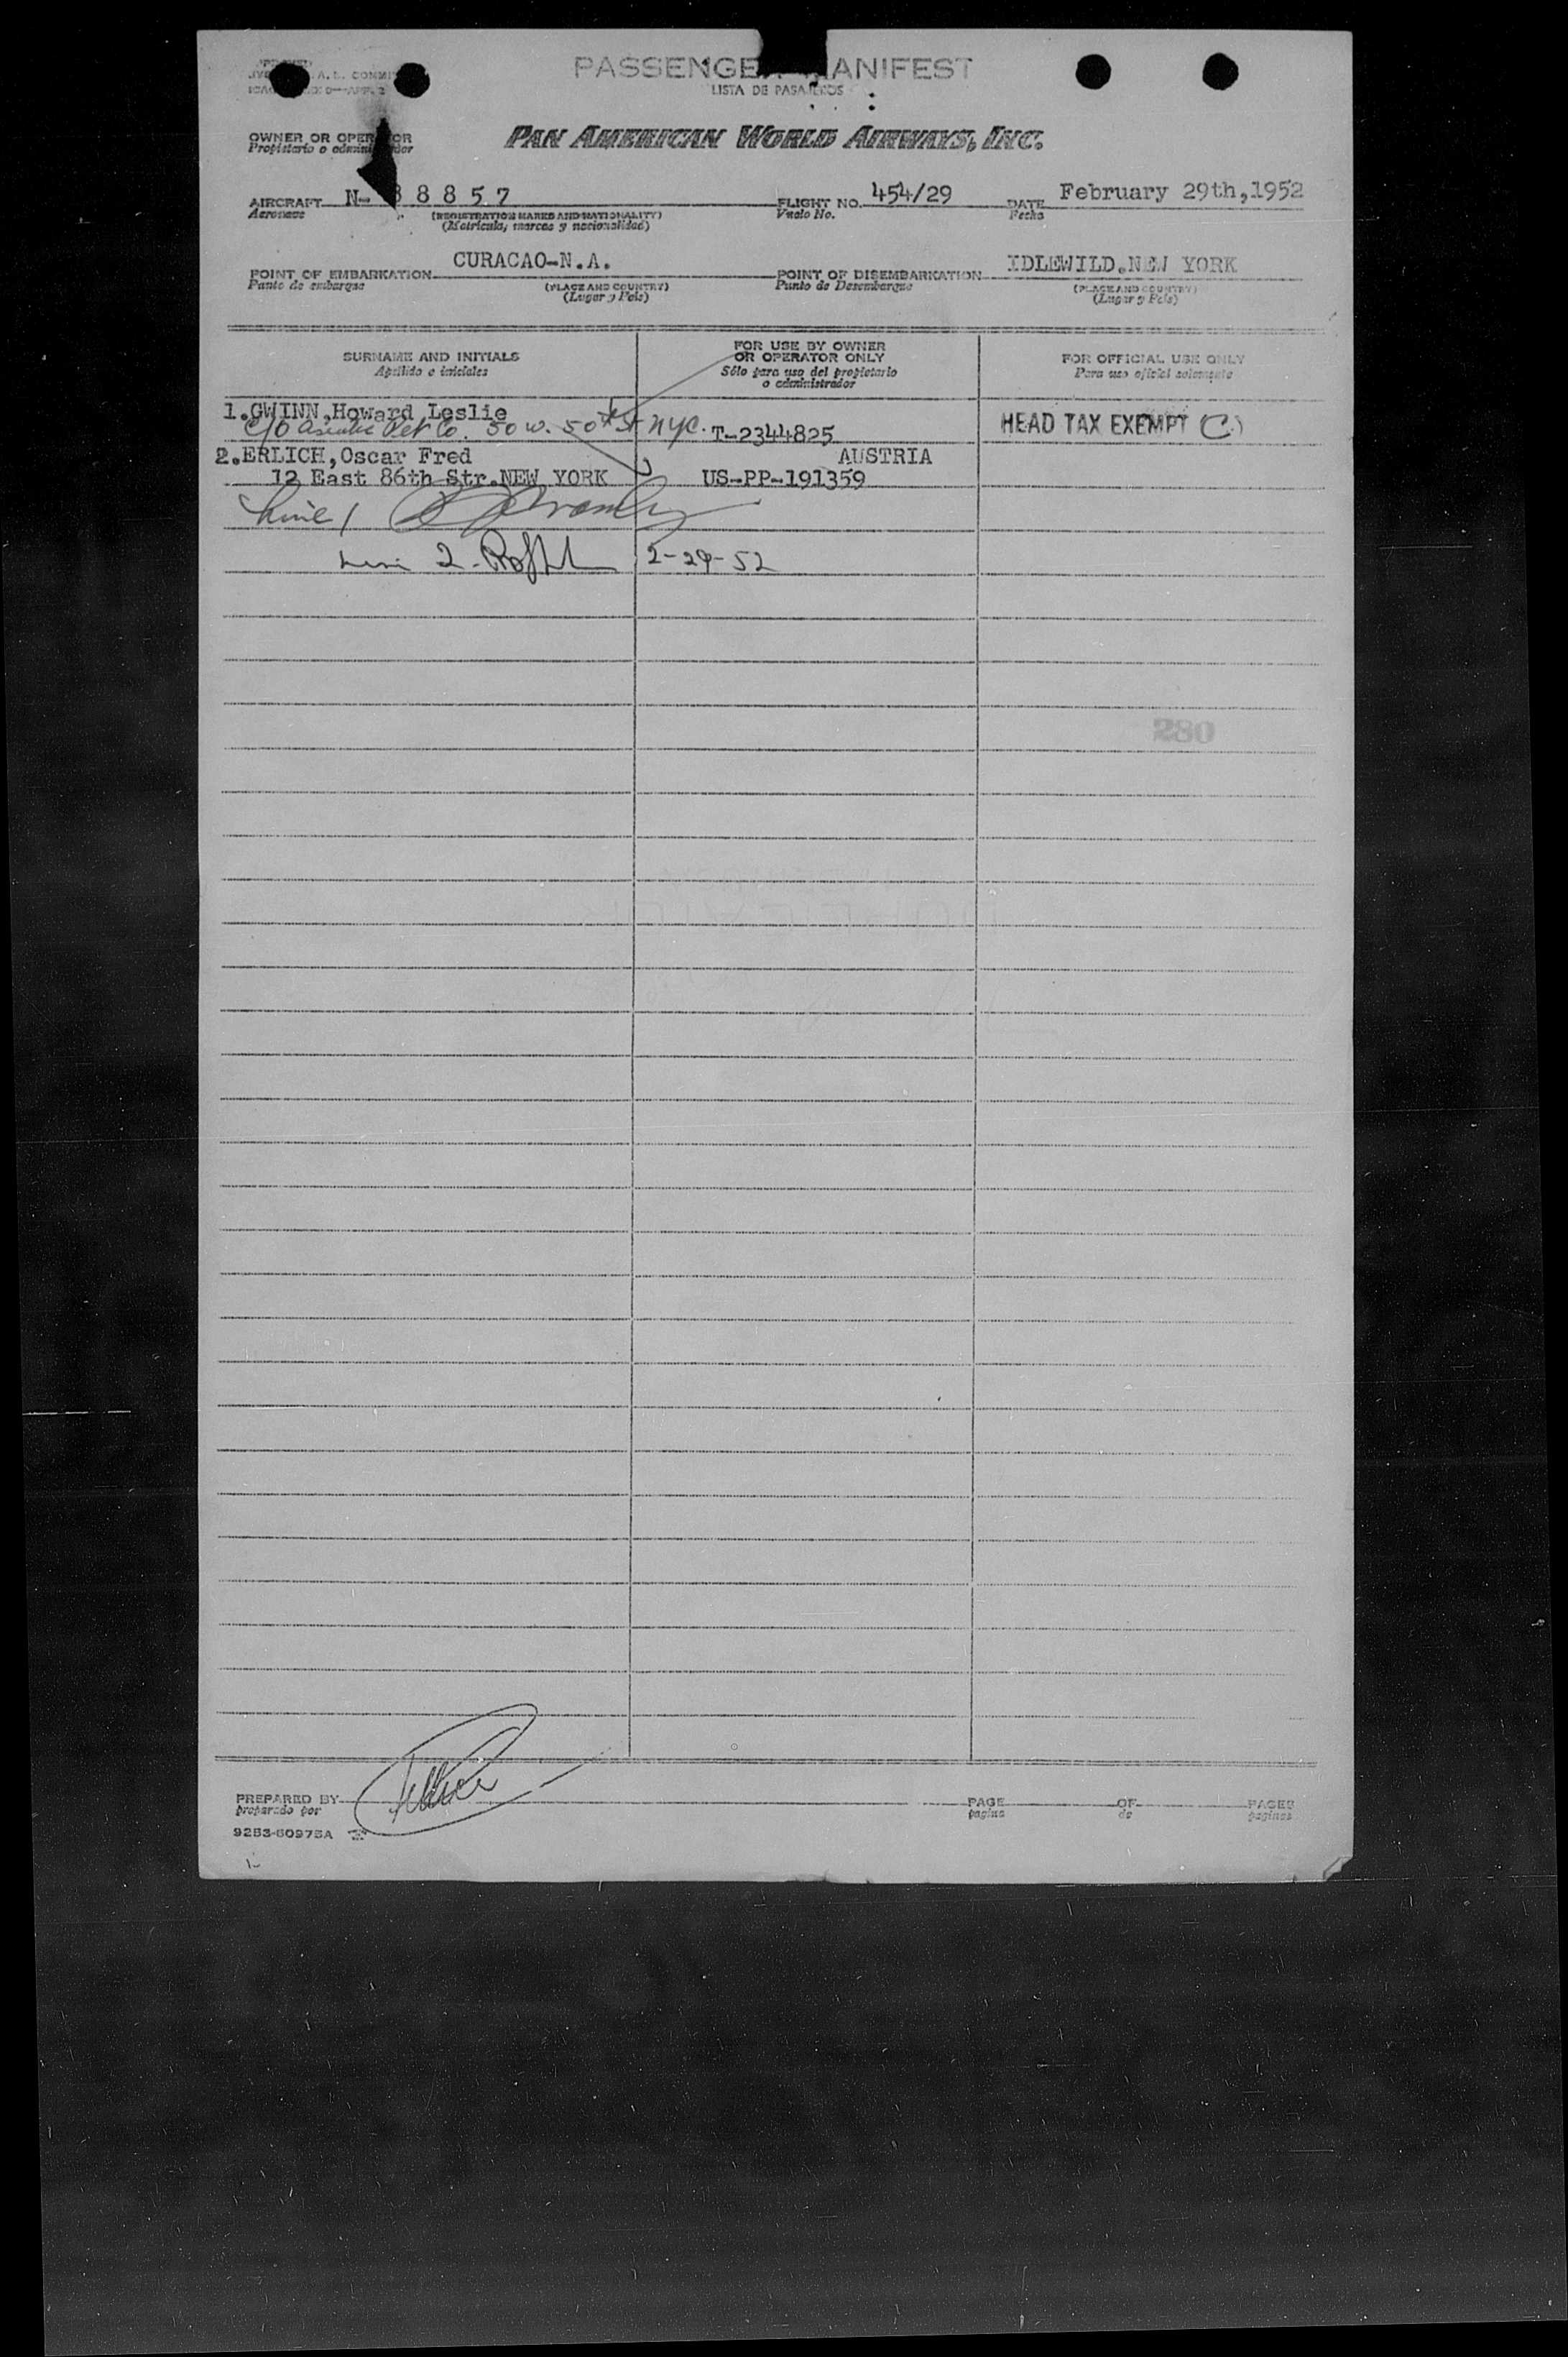 PASSENGE ANIFEST
LISTA DE PASAJEROS
OWNER OR OPERATOR
Propietario o administrador
PAN AMERICAN WORLD AIRWAYS, INC.
AIRCRAFT N-88857 FLIGHT NO. 454/29 DATE February 29th,1952
Aeronave (REGISTRATION MARKS AND NATIONALITY) Vuelo No. Fecha
(Matrícula, marcas y nacionalidad)
POINT OF EMBARKATION CURACAO-N.A. POINT OF DISEMBARKATION IDLEWILD.NEW YORK
Punto de embarque (PLACE AND COUNTRY) Punto de Desembarque (PLACE AND COUNTRY)
(Lugar y País) (Lugar y País)
SURNAME AND INITIALS FOR USE BY OWNER OR OPERATOR ONLY FOR OFFICIAL USE ONLY
Apellido e iniciales Sólo para uso del propietario o administrador Para uso oficial solamente
1.GWINN,Howard Leslie
c/o Asiatic Pet Co. 50 W. 50th St NYC. T-2344825 HEAD TAX EXEMPT (C)
2.ERLICH,Oscar Fred AUSTRIA
12 East 86th Str.NEW YORK US-PP-191359
Line 1
Line 2 2-29-52
280
PREPARED BY PAGE OF PAGES
preparado por página de páginas
9283-60975A